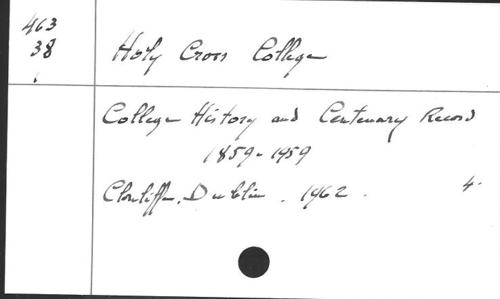 463
38
Holy Cross College
College History and Centenary Record
1859-1959
Clonliffe, Dublin. 1962. 4.